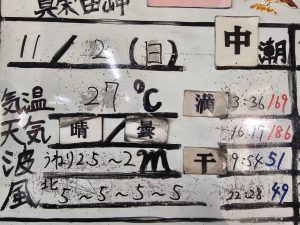 真栄田岬
11/2(日) 中潮
気温 27℃ 満 3:36 169
天気 晴/曇 16:17 186
波 うねり2.5~2m 干 9:54 51
風 北 5~5~5~5 22:28 49